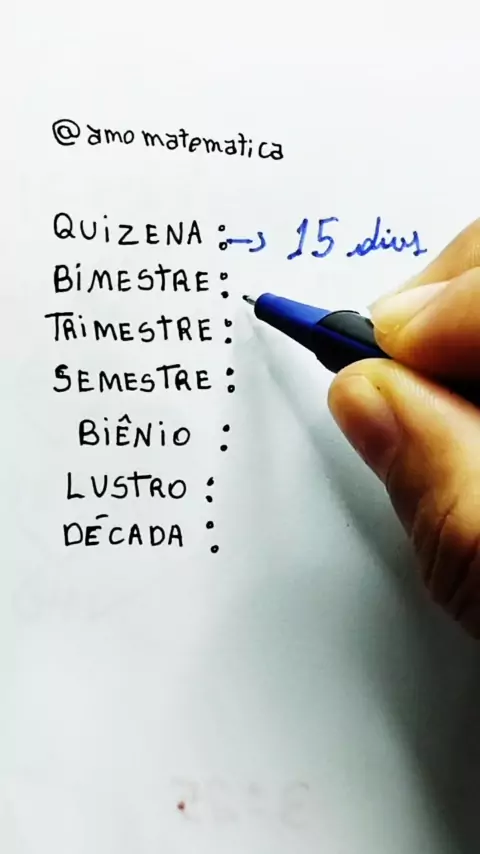 @amomatematica
QUIZENA : → 15 dias
BIMESTRE:
TRIMESTRE:
SEMESTRE:
BIÊNIO :
LUSTRO :
DÉCADA :